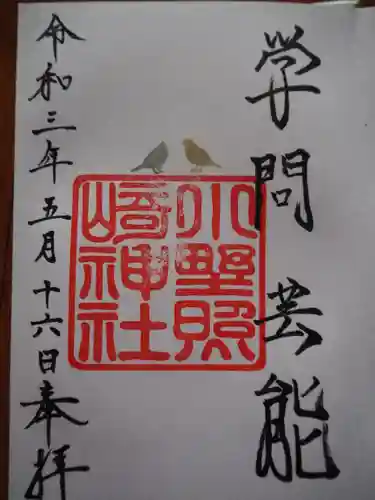 学問芸能
小野照
崎神社
令和三年五月十六日奉拝